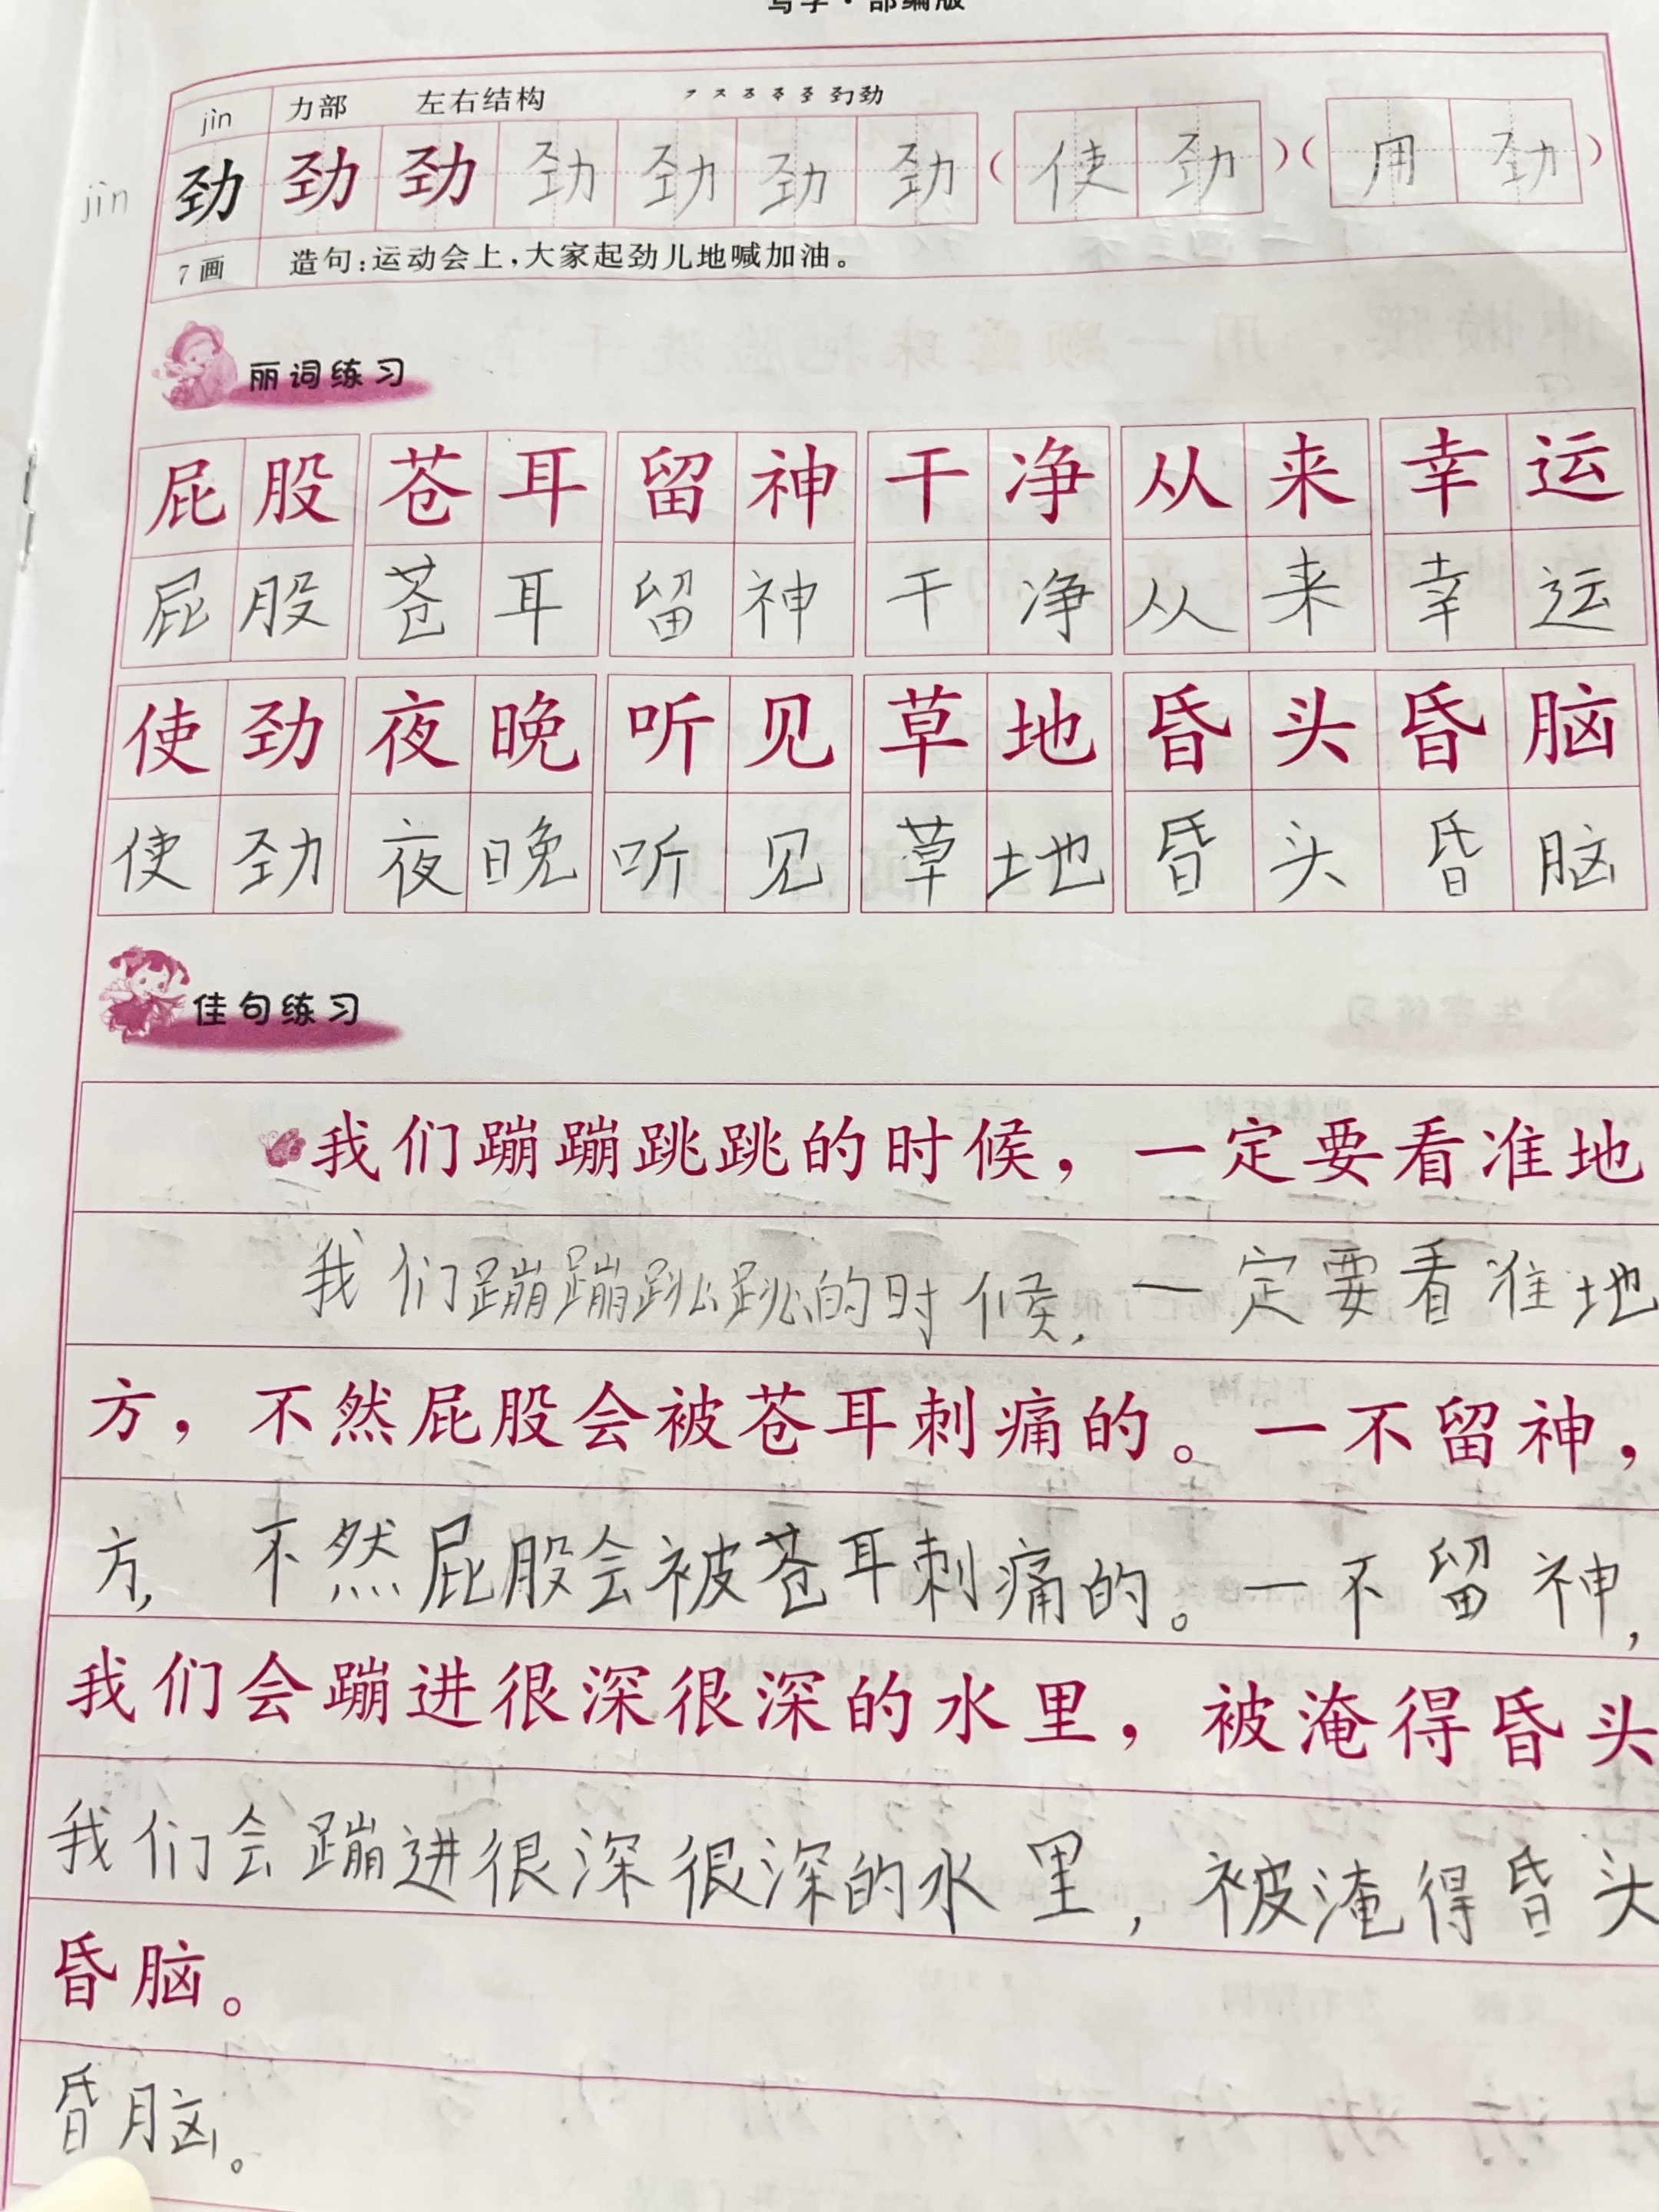 写字·部编版
jìn 力部 左右结构
jìn 劲 劲 劲 劲 劲 劲 劲 (使劲)(用劲)
7画 造句:运动会上,大家起劲儿地喊加油。
丽词练习
屁股 苍耳 留神 干净 从来 幸运
屁股 苍耳 留神 干净 从来 幸运
使劲 夜晚 听见 草地 昏头昏脑
使劲 夜晚 听见 草地 昏头昏脑
佳句练习
我们蹦蹦跳跳的时候,一定要看准地
我们蹦蹦跳跳的时候,一定要看准地
方,不然屁股会被苍耳刺痛的。一不留神,
方,不然屁股会被苍耳刺痛的。一不留神,
我们会蹦进很深很深的水里,被淹得昏头
我们会蹦进很深很深的水里,被淹得昏头
昏脑。
昏脑。